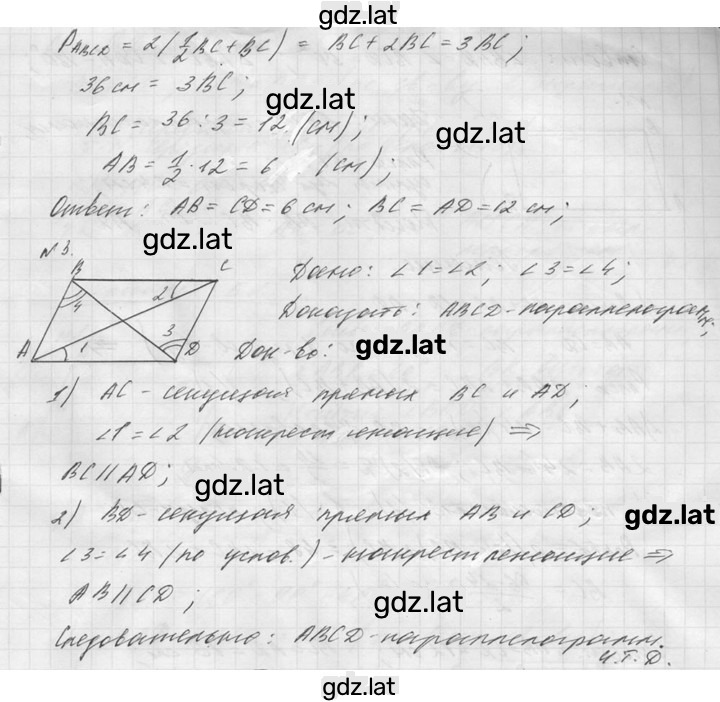 gdz.lat
P_ABCD = 2(1/2 BC + BC) = BC + 2BC = 3BC;
36 см = 3BC;
gdz.lat
BC = 36 : 3 = 12 (см);
gdz.lat
AB = 1/2 · 12 = 6 (см);
Ответ: AB = CD = 6 см; BC = AD = 12 см;
gdz.lat
№3.
B C
2 4
3
A 1 D
Дано: ∠1 = ∠2; ∠3 = ∠4;
Доказать: ABCD - параллелограмм;
Док-во:
gdz.lat
1) AC - секущая прямых BC и AD;
∠1 = ∠2 (накрест лежащие) ⇒
BC || AD;
gdz.lat
2) BD - секущая прямых AB и CD;
gdz.lat
∠3 = ∠4 (по услов.) - накрест лежащие ⇒
AB || CD;
gdz.lat
Следовательно: ABCD - параллелограмм.
Ч.Т.Д.
gdz.lat